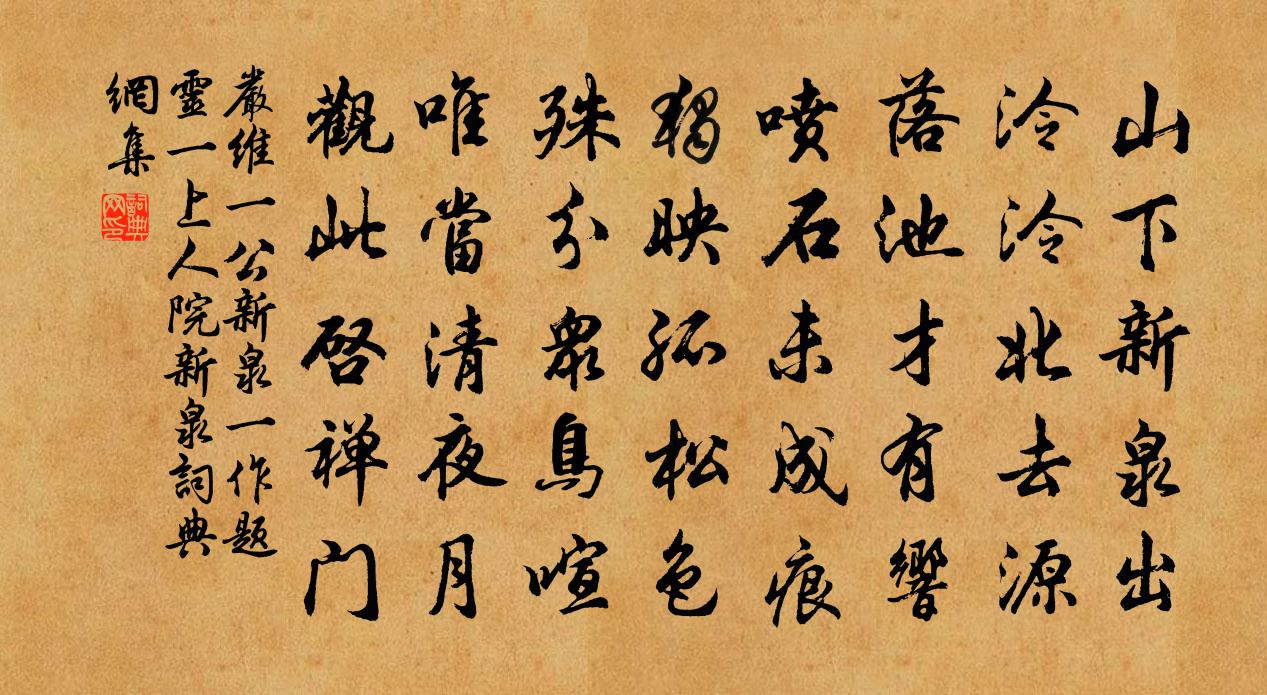 山下新泉出
泠泠北去源
落池才有響
噴石未成痕
獨映孤松色
殊分眾鳥喧
唯當清夜月
觀此啓禅门
嚴維一公新泉一作題
靈一上人院新泉詞典
網集
詞典网印